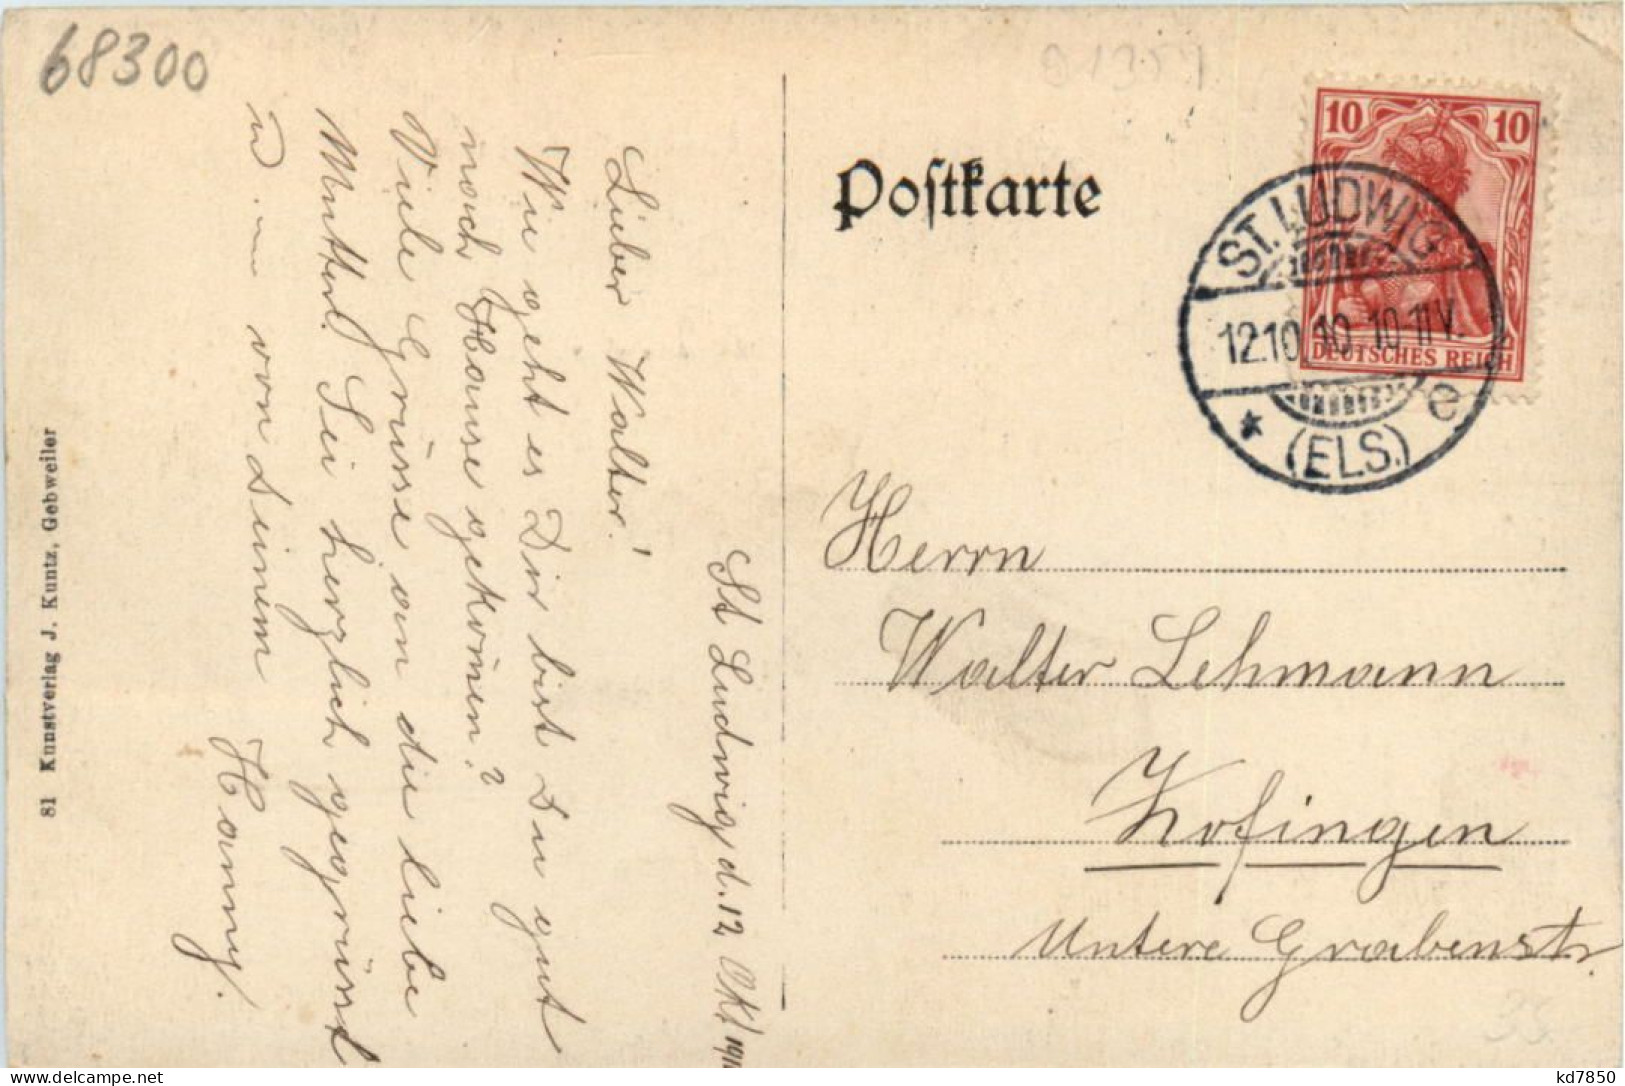 68300
91354
St Ludwig, d. 12. Okt 1910
Lieber Walter!
Wie geht es Dir bist Du gut
noch Hause gekom̅en?
Viele Grüsse an die liebe
Mutterl. Sei herzlich gegrüsst
u. — von Deinem
Hanny.
81 Kunstverlag J. Kuntz, Gebweiler
Postkarte
10 10
DEUTSCHES REICH
ST. LUDWIG
12.10.10.10-11V.
* (ELS.) e
Herrn
Walter Lehmann
Zofingen
Untere Grabenstr.
35
kd7850